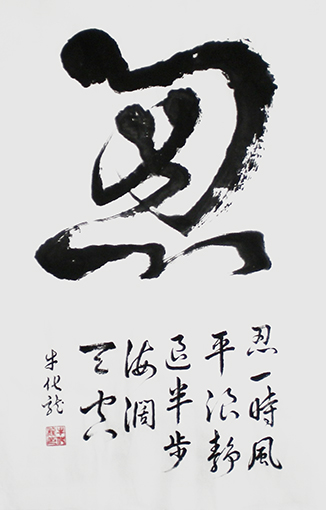 忍
忍一時風
平浪靜
退半步
海濶
天空
化龍